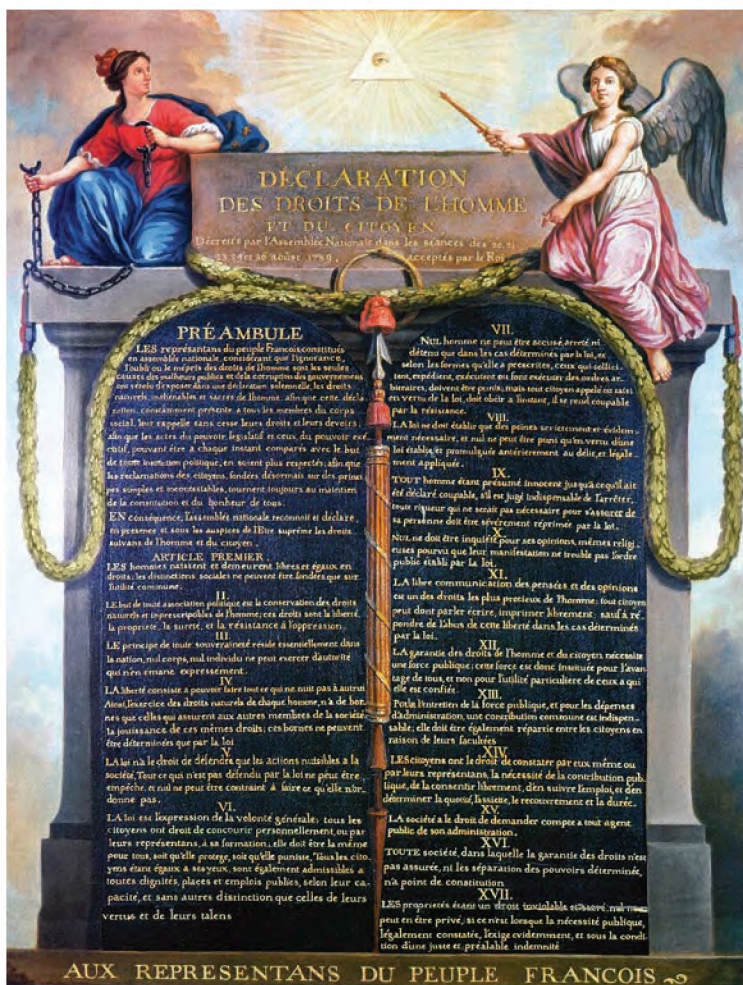 DÉCLARATION
DES DROITS DE L'HOMME
ET DU CITOYEN,
Décretés par l'Assemblée Nationale dans les séances des 20, 21
23, 24 et 26 août 1789, acceptés par le Roi
PRÉAMBULE
LES représantans du peuple François constitués
en assemblée nationale, considérant que l'ignorance,
l'oubli ou le mépris des droits de l'homme sont les seules
causes des malheurs publics et de la corruption des gouvernemens
ont résolu d'exposer dans une déclaration solemnelle, les droits
naturels, inaliénables et sacrés de l'homme; afin que cette décla
ration, constamment présente a tous les membres du corps
social, leur rappelle sans cesse leurs droits et leurs devoirs;
afin que les actes du pouvoir législatif et ceux du pouvoir exé
cutif, pouvant être a chaque instant comparés avec le but
de toute institution politique, en soient plus respectés; afin que
les réclamations des citoyens, fondées désormais sur des princi
pes simples et incontestables, tournent toujours au maintien
de la constitution et du bonheur de tous.
EN conséquence, l'assemblée nationale reconnoit et déclare
en présence et sous les auspices de l'Etre suprême les droits
suivans de l'homme et du citoyen.
ARTICLE PREMIER.
LES hommes naissent et demeurent libres et égaux en
droits; les distinctions sociales ne peuvent être fondées que sur
l'utilité commune.
II.
LE but de toute association politique est la conservation des droits
naturels et imprescriptibles de l'homme; ces droits sont la liberté,
la propriété, la sureté, et la résistance à l'oppression.
III.
LE principe de toute souveraineté réside essentiellement dans
la nation, nul corps, nul individu ne peut exercer d'autorité
qui n'en émane expressement.
IV.
LA liberté consiste a pouvoir faire tout ce qui ne nuit pas à autrui
Ainsi, l'exercice des droits naturels de chaque homme, n'a de bor
nes que celles qui assurent aux autres membres de la société
la jouissance de ces mêmes droits; ces bornes ne peuvent
être déterminées que par la loi
V.
LA loi n'a le droit de défendre que les actions nuisibles a la
société. Tout ce qui n'est pas défendu par la loi ne peut être
empêché, et nul ne peut être contraint à faire ce qu'elle n'or
donne pas.
VI.
LA loi est l'expression de la volonté générale; tous les
citoyens ont droit de concourir personnellement, ou par
leurs représentans, à sa formation; elle doit être la même
pour tous, soit qu'elle protege, soit qu'elle punisse. Tous les cito
yens étant égaux a ses yeux, sont également admissibles a
toutes dignités, places et emplois publics, selon leur ca
pacité, et sans autres distinction que celles de leurs
vertus et de leurs talens
VII.
NUL homme ne peut être accusé, arreté ni
détenu que dans les cas déterminés par la loi, et
selon les formes qu'elle a prescrites, ceux qui sollici
tent, expédient, exécutent ou font exécuter des ordres ar
bitraires, doivent être punis; mais tout citoyen appelé ou saisi
en vertu de la loi, doit obéir a l'instant, il se rend coupable
par la résistance.
VIII.
LA loi ne doit établir que des peines strictement et évidem
ment nécessaire, et nul ne peut être puni qu'en vertu d'une
loi établie et promulguée antérierement au délit, et légale
ment appliquée.
IX.
TOUT homme étant présumé innocent jusqu'a ce qu'il ait
été déclaré coupable, s'il est jugé indispensable de l'arrêter,
toute rigueur qui ne serait pas nécessaire pour s'assurer de
sa personne doit être sévèrement réprimée par la loi.
X.
NUL ne doit être inquiété pour ses opinions, mêmes religi
euses pourvu que leur manifestation ne trouble pas l'ordre
public établi par la loi.
XI.
LA libre communication des pensées et des opinions
est un des droits les plus precieux de l'homme; tout citoyen
peut dont parler écrire, imprimer librement; sauf à ré
pondre de l'abus de cette liberté dans les cas déterminés
par la loi.
XII.
LA garantie des droits de l'homme et du citoyen nécessite
une force publique; cette force est donc instituée pour l'avan
tage de tous, et non pour l'utilité particuliere de ceux a qui
elle est confiée.
XIII.
Pour l'entretien de la force publique, et pour les dépenses
d'administration, une contribution commune est indispen
sable; elle doit être également répartie entre les citoyens en
raison de leurs facultées
XIV.
LES citoyens ont le droit de constater par eux même ou
par leurs représentans, la nécessité de la contribution pub
lique, de la consentir librement, d'en suivre l'emploi, et d'en
déterminer la quotité, l'assiette, le recouvrement et la durée.
XV.
LA société a le droit de demander compte a tout agent
public de son administration.
XVI.
TOUTE société, dans laquelle la garantie des droits n'est
pas assurée, ni les séparation des pouvoirs déterminée,
n'a point de constitution
XVII.
LES proprietés étant un droit inviolable et sacré, nul ne
peut en être privé, si ce n'est lorsque la nécessité publique,
légalement constatée, l'exige evidemment, et sous la condi
tion d'une juste et préalable indemnité
AUX REPRESENTANS DU PEUPLE FRANCOIS